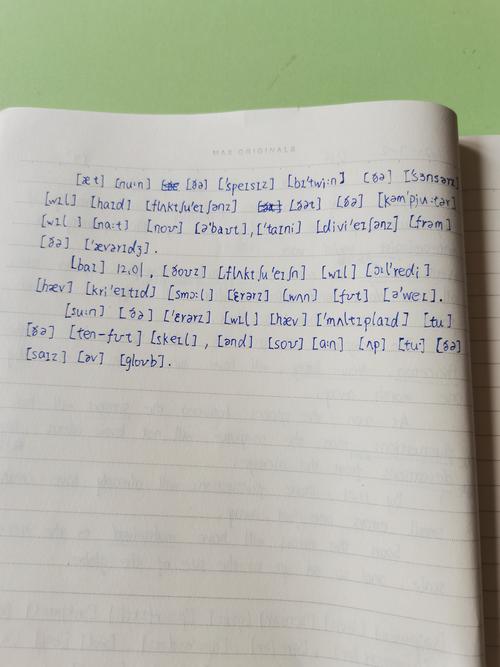 MAX ORIGINALS
[æt] [nuːn] [ðə] ['speɪsɪz] [bɪ'twiːn] [ðə] ['sɜnsərz]
[wɪl] [haɪd] [flʌktʃu'eɪʃənz] [ðət] [ðə] [kəm'pjuːtər]
[wɪl] [nɑːt] [noʊ] [ə'baʊt], ['taɪni] [divi'eɪʃənz] [frəm]
[ðə] ['ævərɪdʒ].
[baɪ] 12,01, [ðoʊz] [flʌktʃu'eɪʃn] [wɪl] [ɔːl'redi]
[hæv] [kri'eɪtɪd] [smɔːl] [ɛrərz] [wʌn] [fʊt] [ə'weɪ].
[suːn] [ðə] ['ɛrərz] [wɪl] [hæv] ['mʌltɪplaɪd] [tu]
[ðə] [ten-fʊt] [skeɪl], [ənd] [soʊ] [ɑːn] [ʌp] [tu] [ðə]
[saɪz] [əv] [gloʊb].